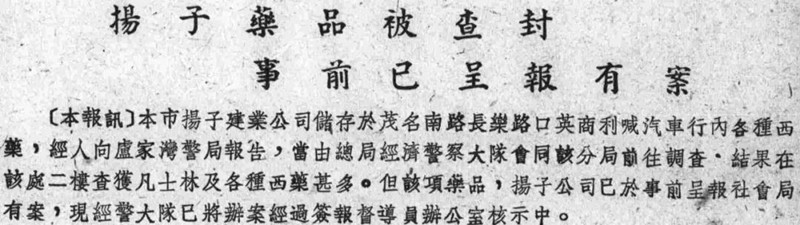 揚子藥品被查封
事前已呈報有案
〔本報訊〕本市揚子建業公司儲存於茂名南路長樂路口英商利喊汽車行內各種西
藥，經人向盧家灣警局報告，當由總局經濟警察大隊會同該分局前往調查，結果在
該處二樓查獲凡士林及各種西藥甚多。但該項藥品，揚子公司已於事前呈報社會局
有案，現經警大隊已將辦案經過簽報督導員辦公室核示中。